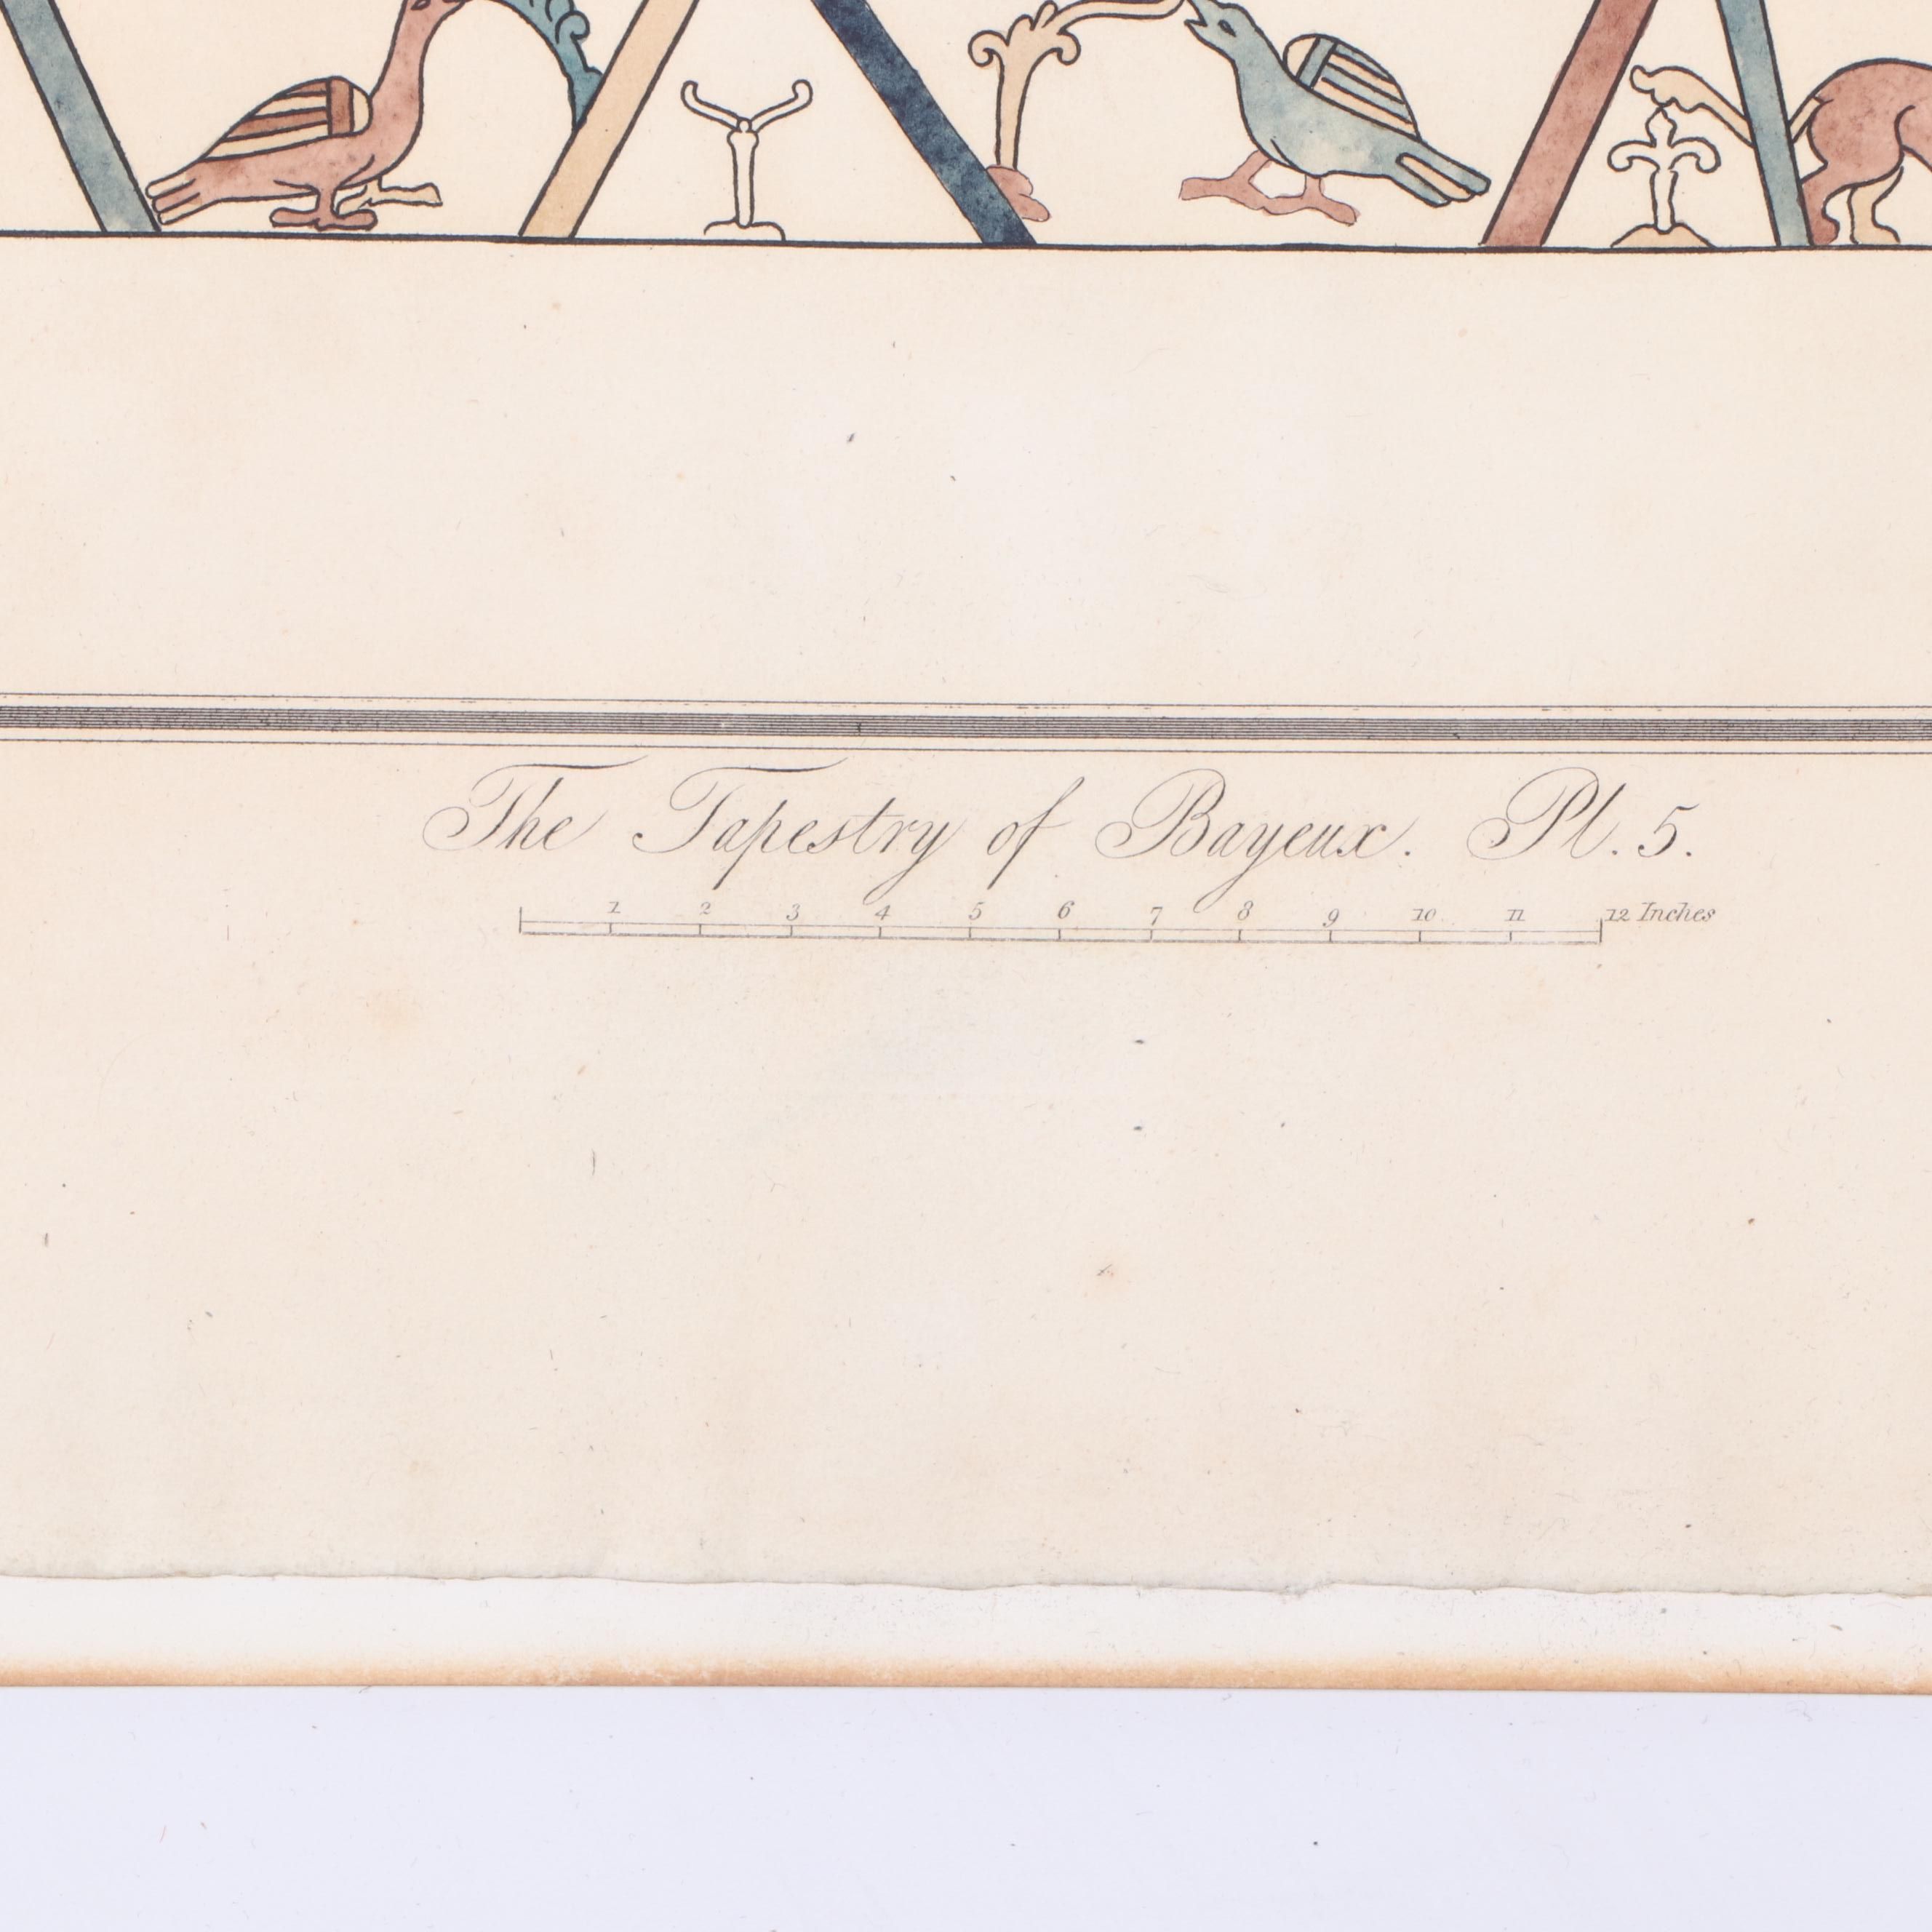 The Tapestry of Bayeux. Pl. 5.
1 2 3 4 5 6 7 8 9 10 11 12 Inches